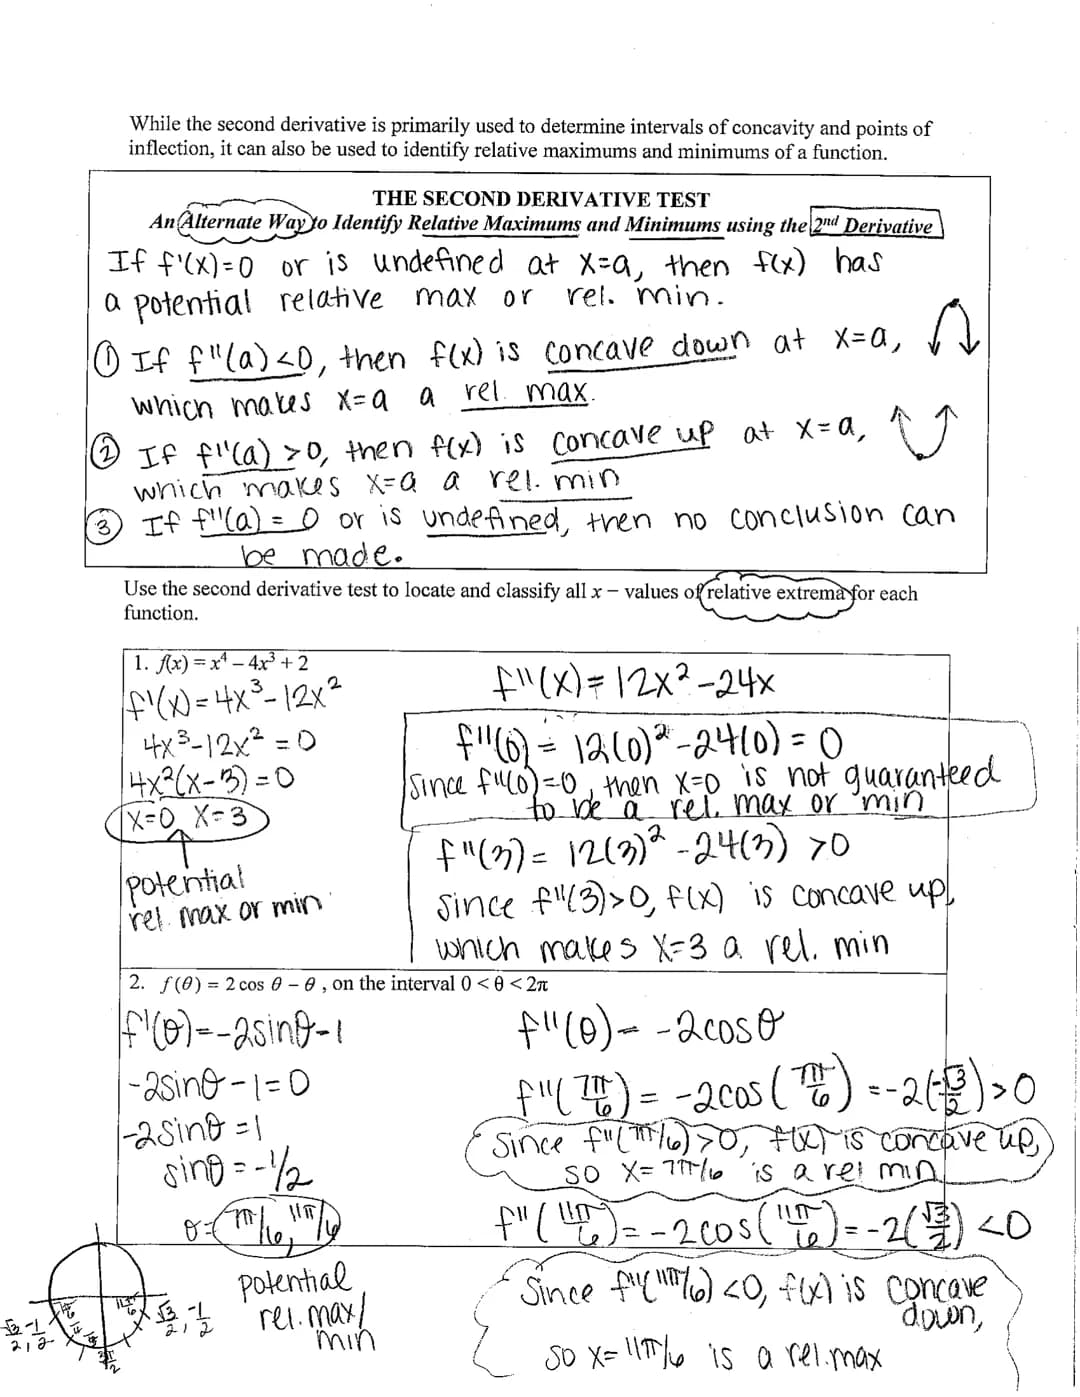 While the second derivative is primarily used to determine intervals of concavity and points of
inflection, it can also be used to identify relative maximums and minimums of a function.
THE SECOND DERIVATIVE TEST
An Alternate Way to Identify Relative Maximums and Minimums using the 2nd Derivative
If f'(x)=0 or is undefined at x=a, then f(x) has
a potential relative max or rel. min.
① If f"(a)<0, then f(x) is concave down at x=a,
which makes x=a a rel. max.
② If f"(a) >0, then f(x) is concave up at x=a,
which makes x=a a rel. min
③ If f"(a) = 0 or is undefined, then no conclusion can
be made.
Use the second derivative test to locate and classify all x – values of relative extrema for each
function.
1. f(x) = x⁴ – 4x³ + 2
f'(x)=4x³-12x²
4x³-12x² = 0
4x²(x-3) = 0
x=0, x=3
potential
rel. max or min
f"(x)= 12x²-24x
f"(0) = 12(0)²-24(0) = 0
Since f"(0)=0, then x=0 is not guaranteed
to be a rel. max or min
f"(3)= 12(3)² -24(3) >0
Since f"(3)>0, f(x) is concave up,
which makes x=3 a rel. min
2. f(θ) = 2 cos θ – θ , on the interval 0 < θ < 2π
f'(θ)=-2sinθ-1
-2sinθ-1=0
-2sinθ =1
sinθ = -1/2
θ= 7π/6, 11π/6
potential
rel. max/
min
f"(θ)= -2cosθ
f"(7π/6) = -2cos(7π/6) =-2(-√3/2)>0
Since f"(7π/6)>0, f(x) is concave up,
so x= 7π/6 is a rel min
f"(11π/6)= -2cos(11π/6)=-2(√3/2) <0
Since f"(11π/6) <0, f(x) is concave
down,
so x= 11π/6 is a rel.max
11π/6
√3/2, -1/2